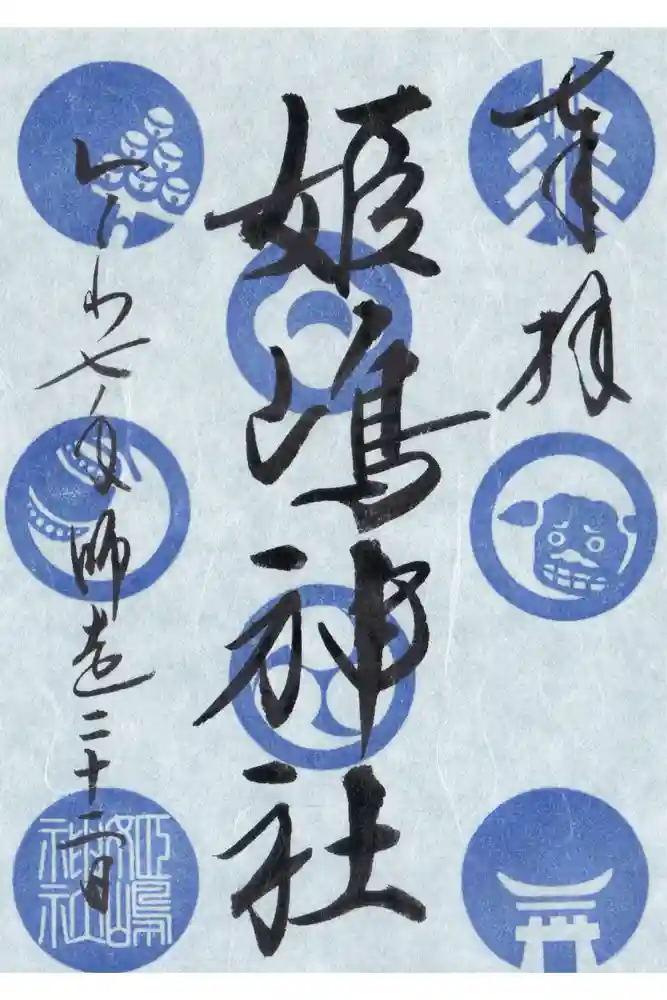 奉拝
姫嶋神社
れいわ七年師走二十二日
姫嶋神社